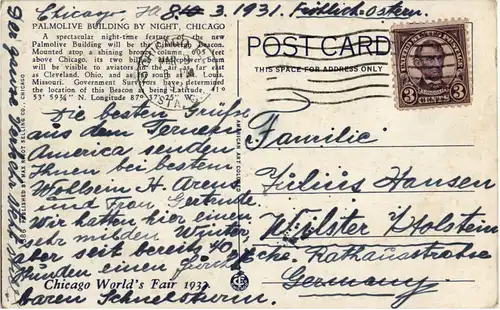 Chicago 8 3. 1931. Fröhlich. Ostern.
PALMOLIVE BUILDING BY NIGHT, CHICAGO
A spectacular night-time feature of the new
Palmolive Building will be the Beacon.
Mounted atop a shining bronze column, 605 feet
above Chicago, its two billion
beam will be visible to aviators in the air as far east
as Cleveland, Ohio, and as St. Louis,
Missouri. Government Surveyors have determined
the location of this Beacon as being Latitude, 41°
53' 59¾" N. Longitude 87° 17' 25"
Die besten Grüsse
aus dem Fernen
America senden
Ihnen bei bestem
Wohlsern H. Arens
und Frau Gertrude.
Wir hatten hier einen
sehr milden Winter
aber seit bereits 40
Stunden einen furcht
baren Schneesturm.
Chicago World's Fair 1933
POST CARD
THIS SPACE FOR ADDRESS ONLY
UNITED STATES POSTAGE
3 CENTS 3
Familie
Julius Hansen
Wilster i/Holstein
Ecke. Rathausstrasse
Germany
AMERICAN ART COLORED
PUBLISHED BY MAX RIGOT SELLING CO., CHICAGO